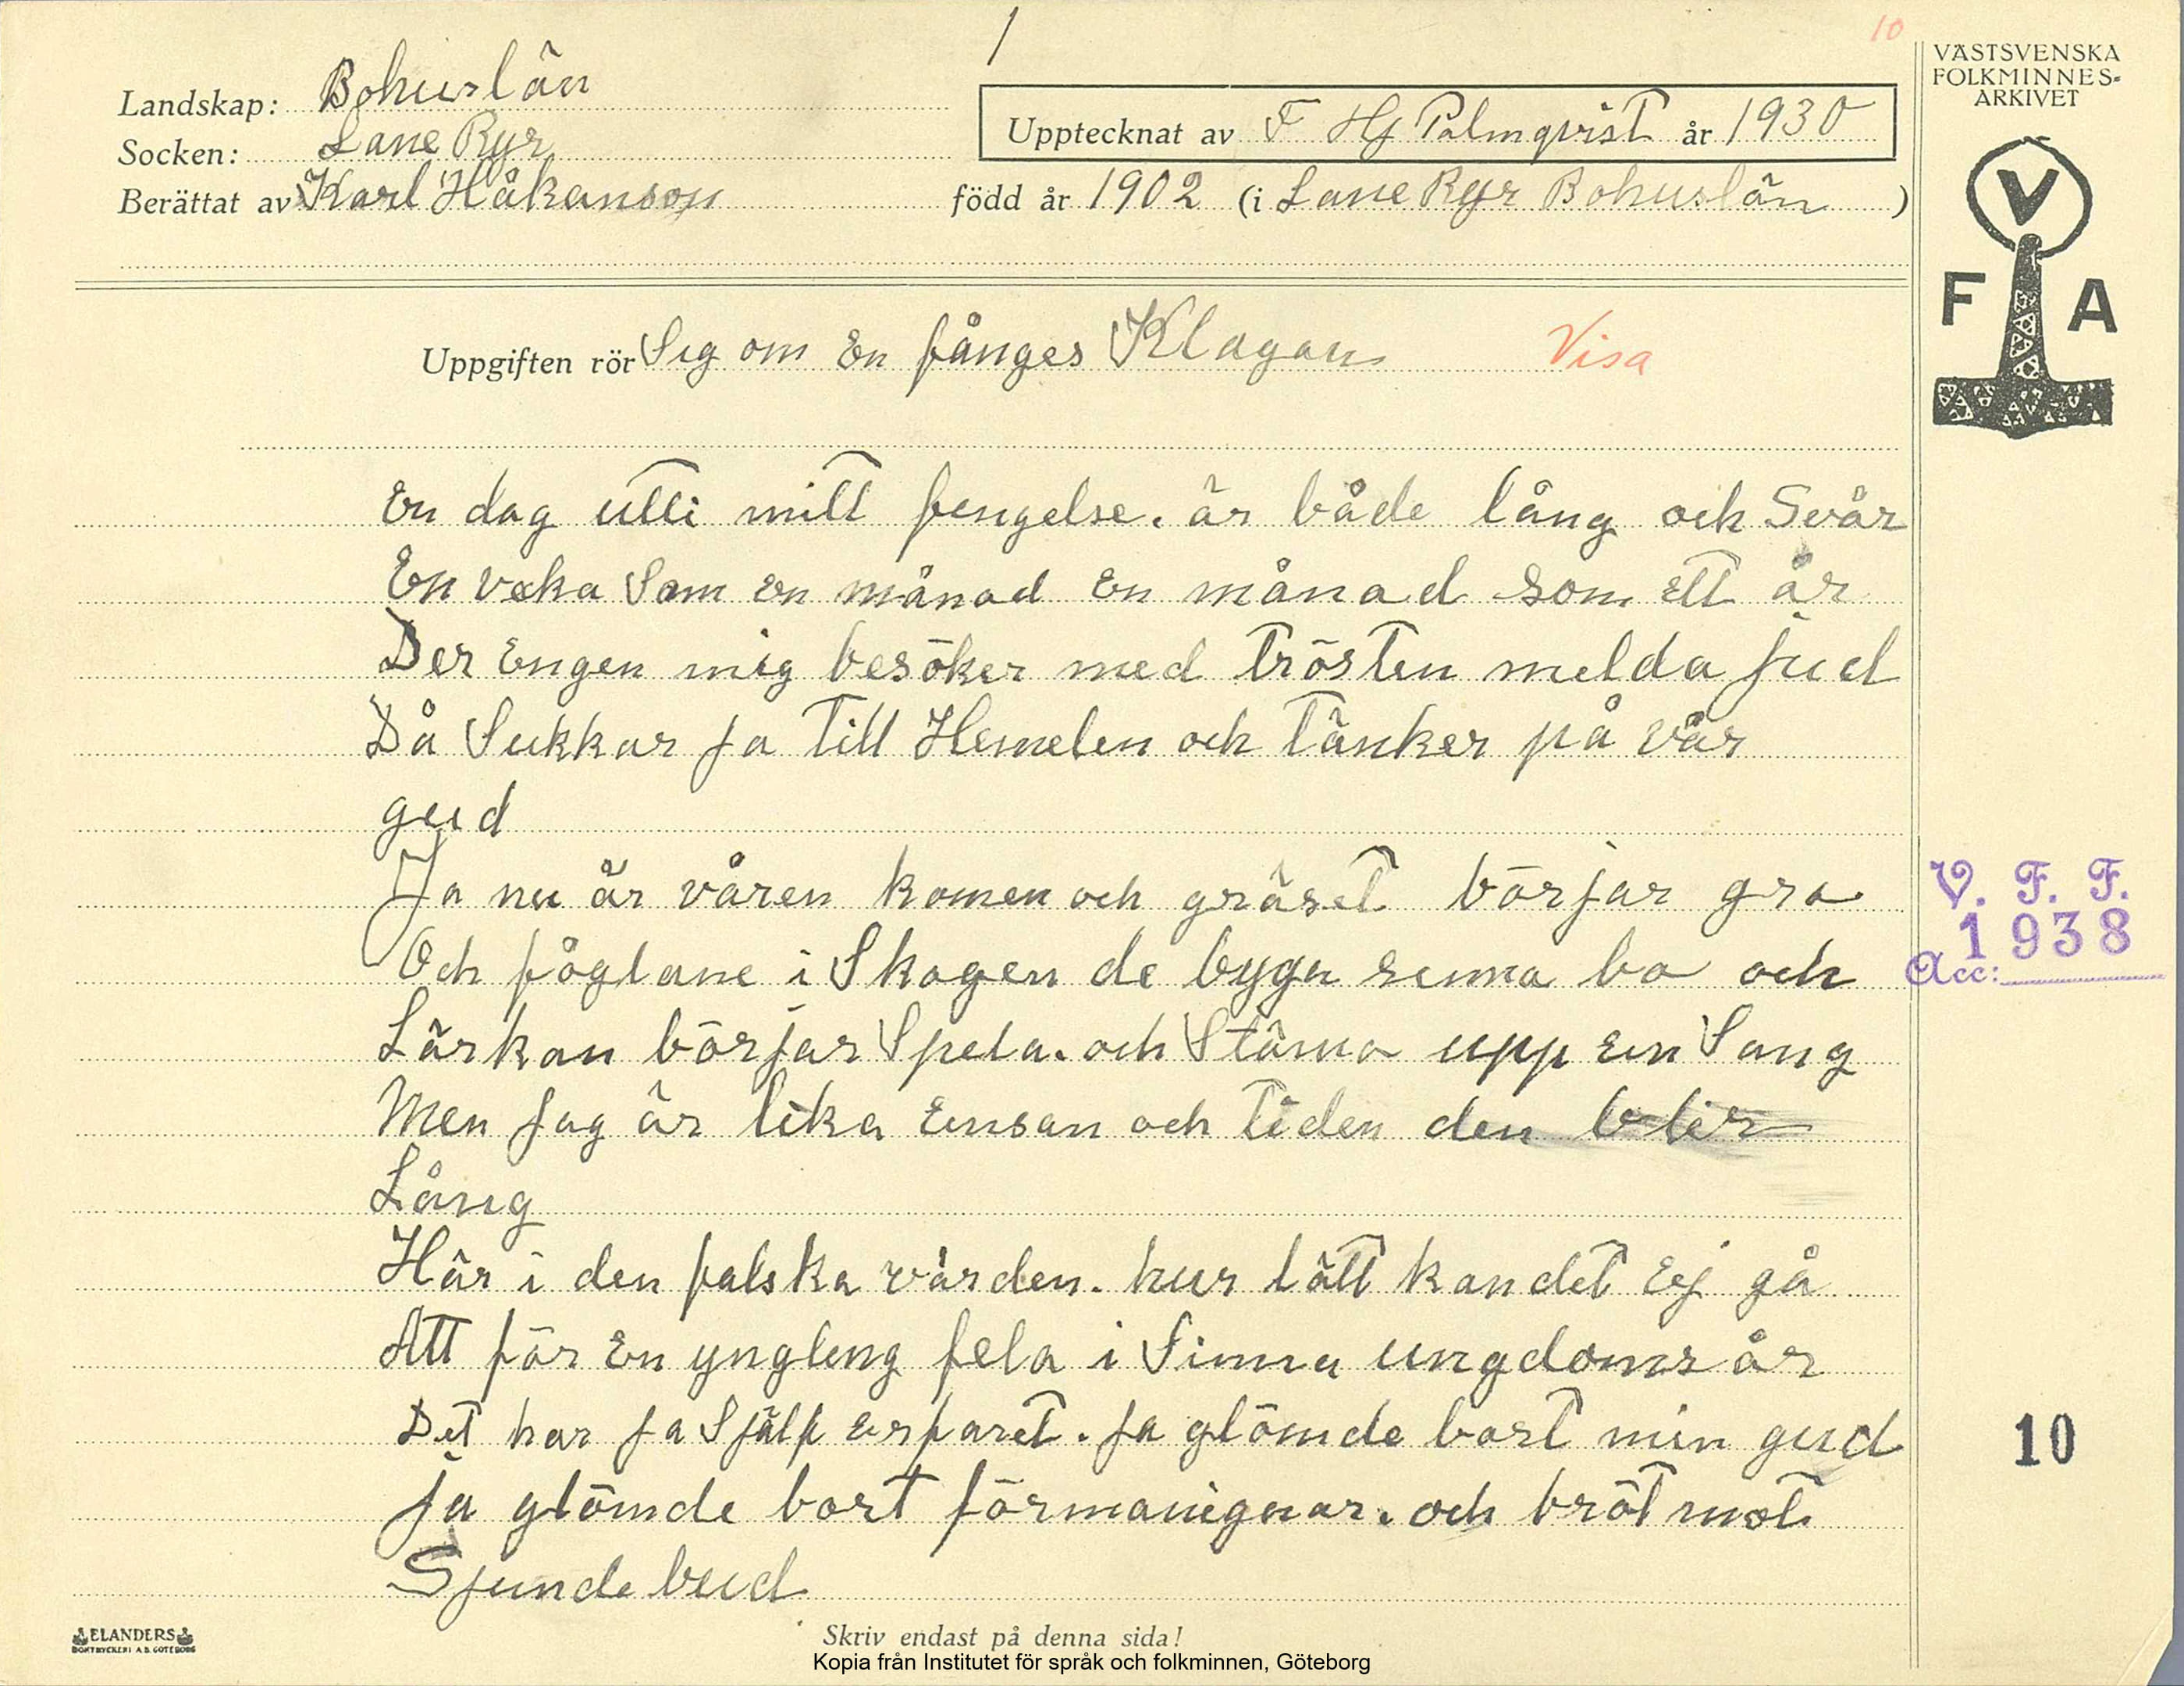 1
10
VÄSTSVENSKA
FOLKMINNES-
ARKIVET
Landskap: Bohuslän
Upptecknat av F Hj Palmqvist år 1930
Socken: Lane Ryr
Berättat av Karl Håkanson född år 1902 (i Lane Ryr Bohuslän)
V
F A
Uppgiften rör Sig om En fånges Klagan Visa
En dag utti mitt fengelse. är både lång och Svår
En veka Som en månad En månad som ett år
Der Engen mig besöker med trösten melda jud
Då Sukkar ja Till Hemelen och tänker på vår
gud
Ja nu är våren komen och gräset börjar gro
Och foglane i Skogen de byga sinna bo och
Lärkan börjar Spela. och Stäma upp ein Sang
Men jag är lika Ensan och tiden den blir
Lång
Här i den falska värden. hur lätt kan det Ej gå
Att för En yngleng fela i Sinna ungdoms år
Det har ja Själf erfaret. ja glömde bort min gud
ja glömde bort förmanignar. och bröt mot
Sjunde bud
V. F. F.
1938
Acc:
10
ELANDERS
BOKTRYCKERI A.B. GÖTEBORG
Skriv endast på denna sida!
Kopia från Institutet för språk och folkminnen, Göteborg